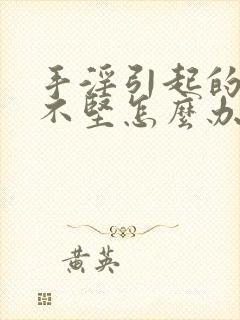 手淫引起的
不堅怎麼办
黄英